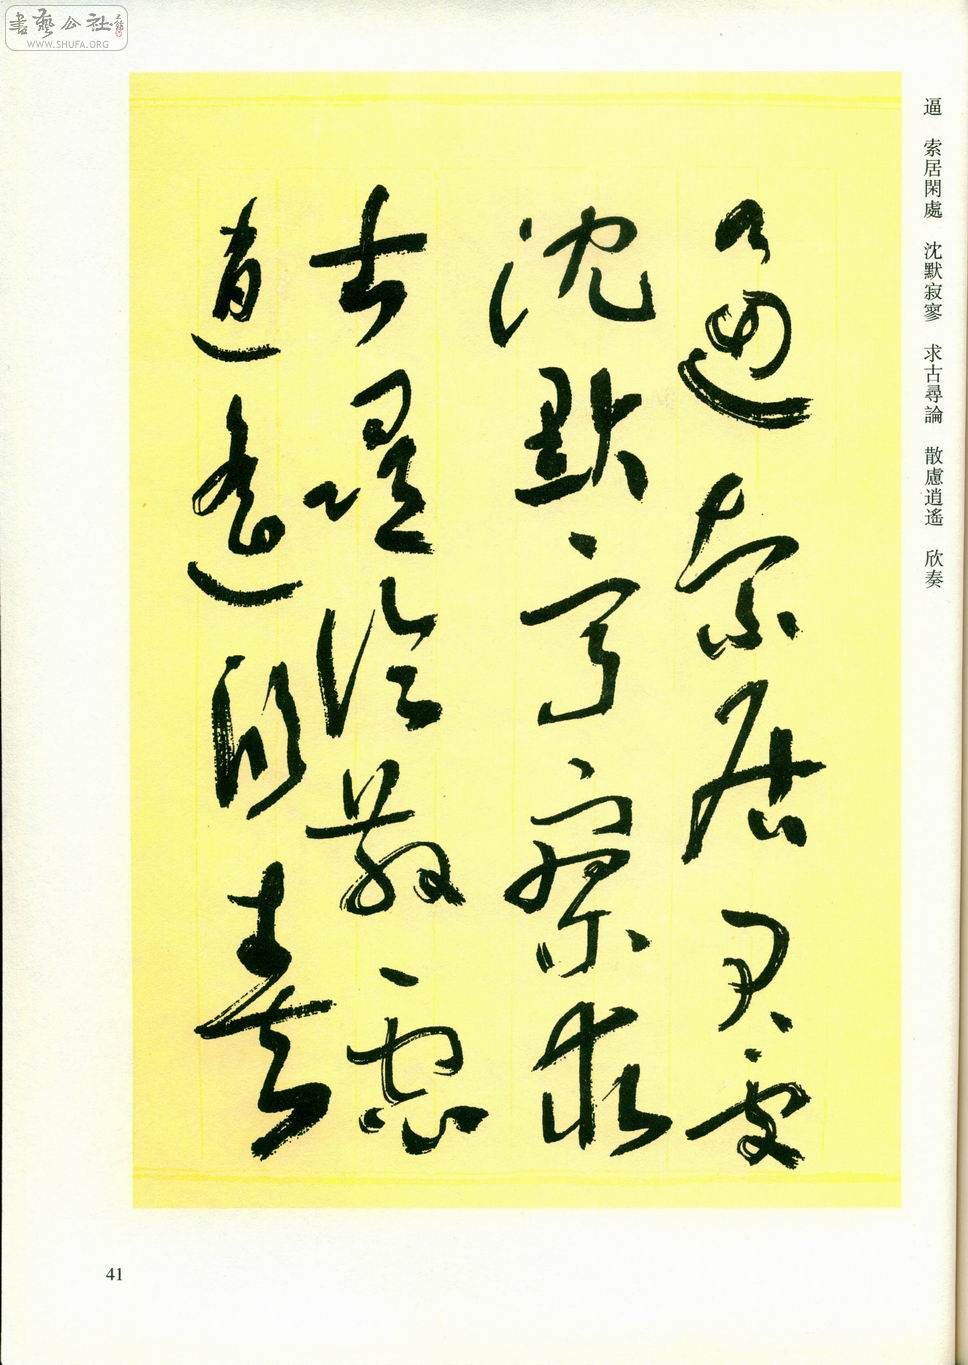 書藝公社
WWW.SHUFA.ORG
逼 索居閑處 沈默寂寥 求古尋論 散慮逍遙 欣奏
逼索居閑處
沈默寂寥求
古尋論散慮
逍遙欣奏
41